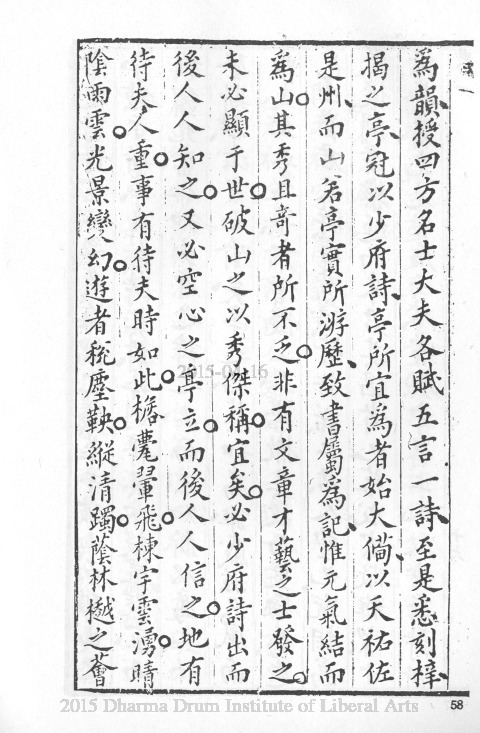 為韻授四方名士大夫各賦五言一詩至是悉刻梓
揭之亭冠以少府詩亭所宜為者始大備以天祐佐
是州而山若亭實所游歷致書屬為記惟元氣結而
為山其秀且奇者所不乏非有文章才藝之士發之
未必顯于世破山之以秀傑稱宜矣必少府詩出而
後人人知之又必空心之亭立而後人人信之地有
待夫人重事有待夫時如此檐甍翬飛棟宇雲湧晴
陰雨雲光景變幻遊者稅塵鞅縱清躅蔭林樾之薈
58
2015-01-16
2015 Dharma Drum Institute of Liberal Arts